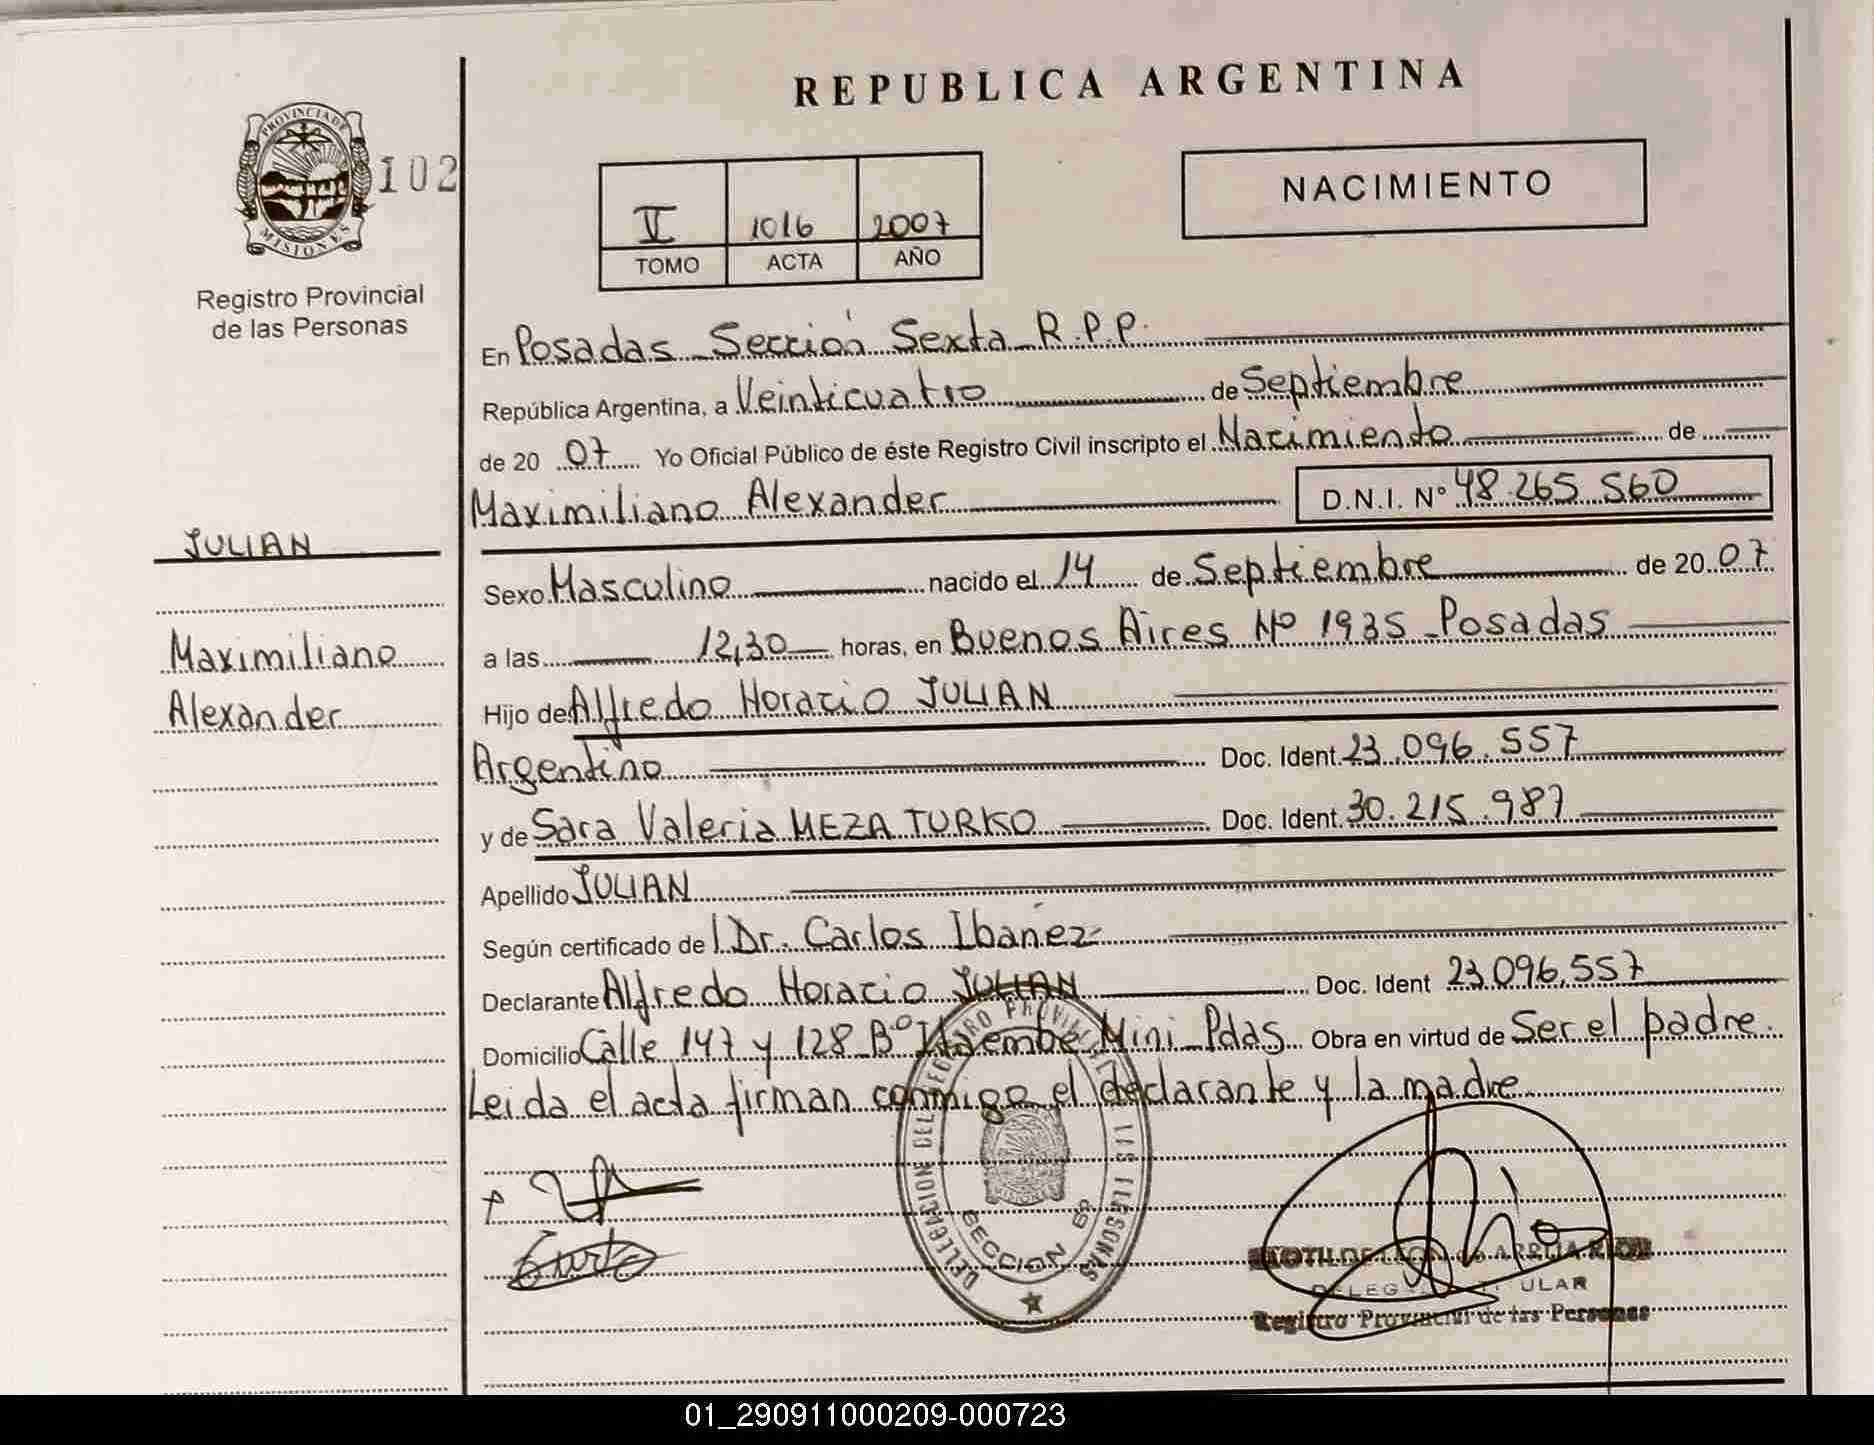 REPUBLICA ARGENTINA
PROVINCIA DE
MISIONES
102
Registro Provincial
de las Personas
V 1016 2007
TOMO ACTA AÑO
NACIMIENTO
En Posadas Sección Sexta R.P.P.
República Argentina, a Veinticuatro de Septiembre
de 20 07 Yo Oficial Público de éste Registro Civil inscripto el Nacimiento de
Maximiliano Alexander D.N.I. Nº 48.265.560
JULIAN
Maximiliano
Alexander
Sexo Masculino nacido el 14 de Septiembre de 20 07
a las 12,30 horas, en Buenos Aires Nº 1935 Posadas
Hijo de Alfredo Horacio JULIAN
Argentino Doc. Ident. 23.096.557
y de Sara Valeria MEZA TURKO Doc. Ident. 30.215.987
Apellido JULIAN
Según certificado de Dr. Carlos Ibañez
Declarante Alfredo Horacio JULIAN Doc. Ident 23.096,557
Domicilio Calle 147 y 128 Bº Itaembe Mini Pdas Obra en virtud de Ser el padre.
Leida el acta firman conmigo el declarante y la madre
DELEGACION DEL REGISTRO PROVINCIAL DE LAS PERSONAS
SECCION 6ª
Registro Provincial de las Personas
01_290911000209-000723